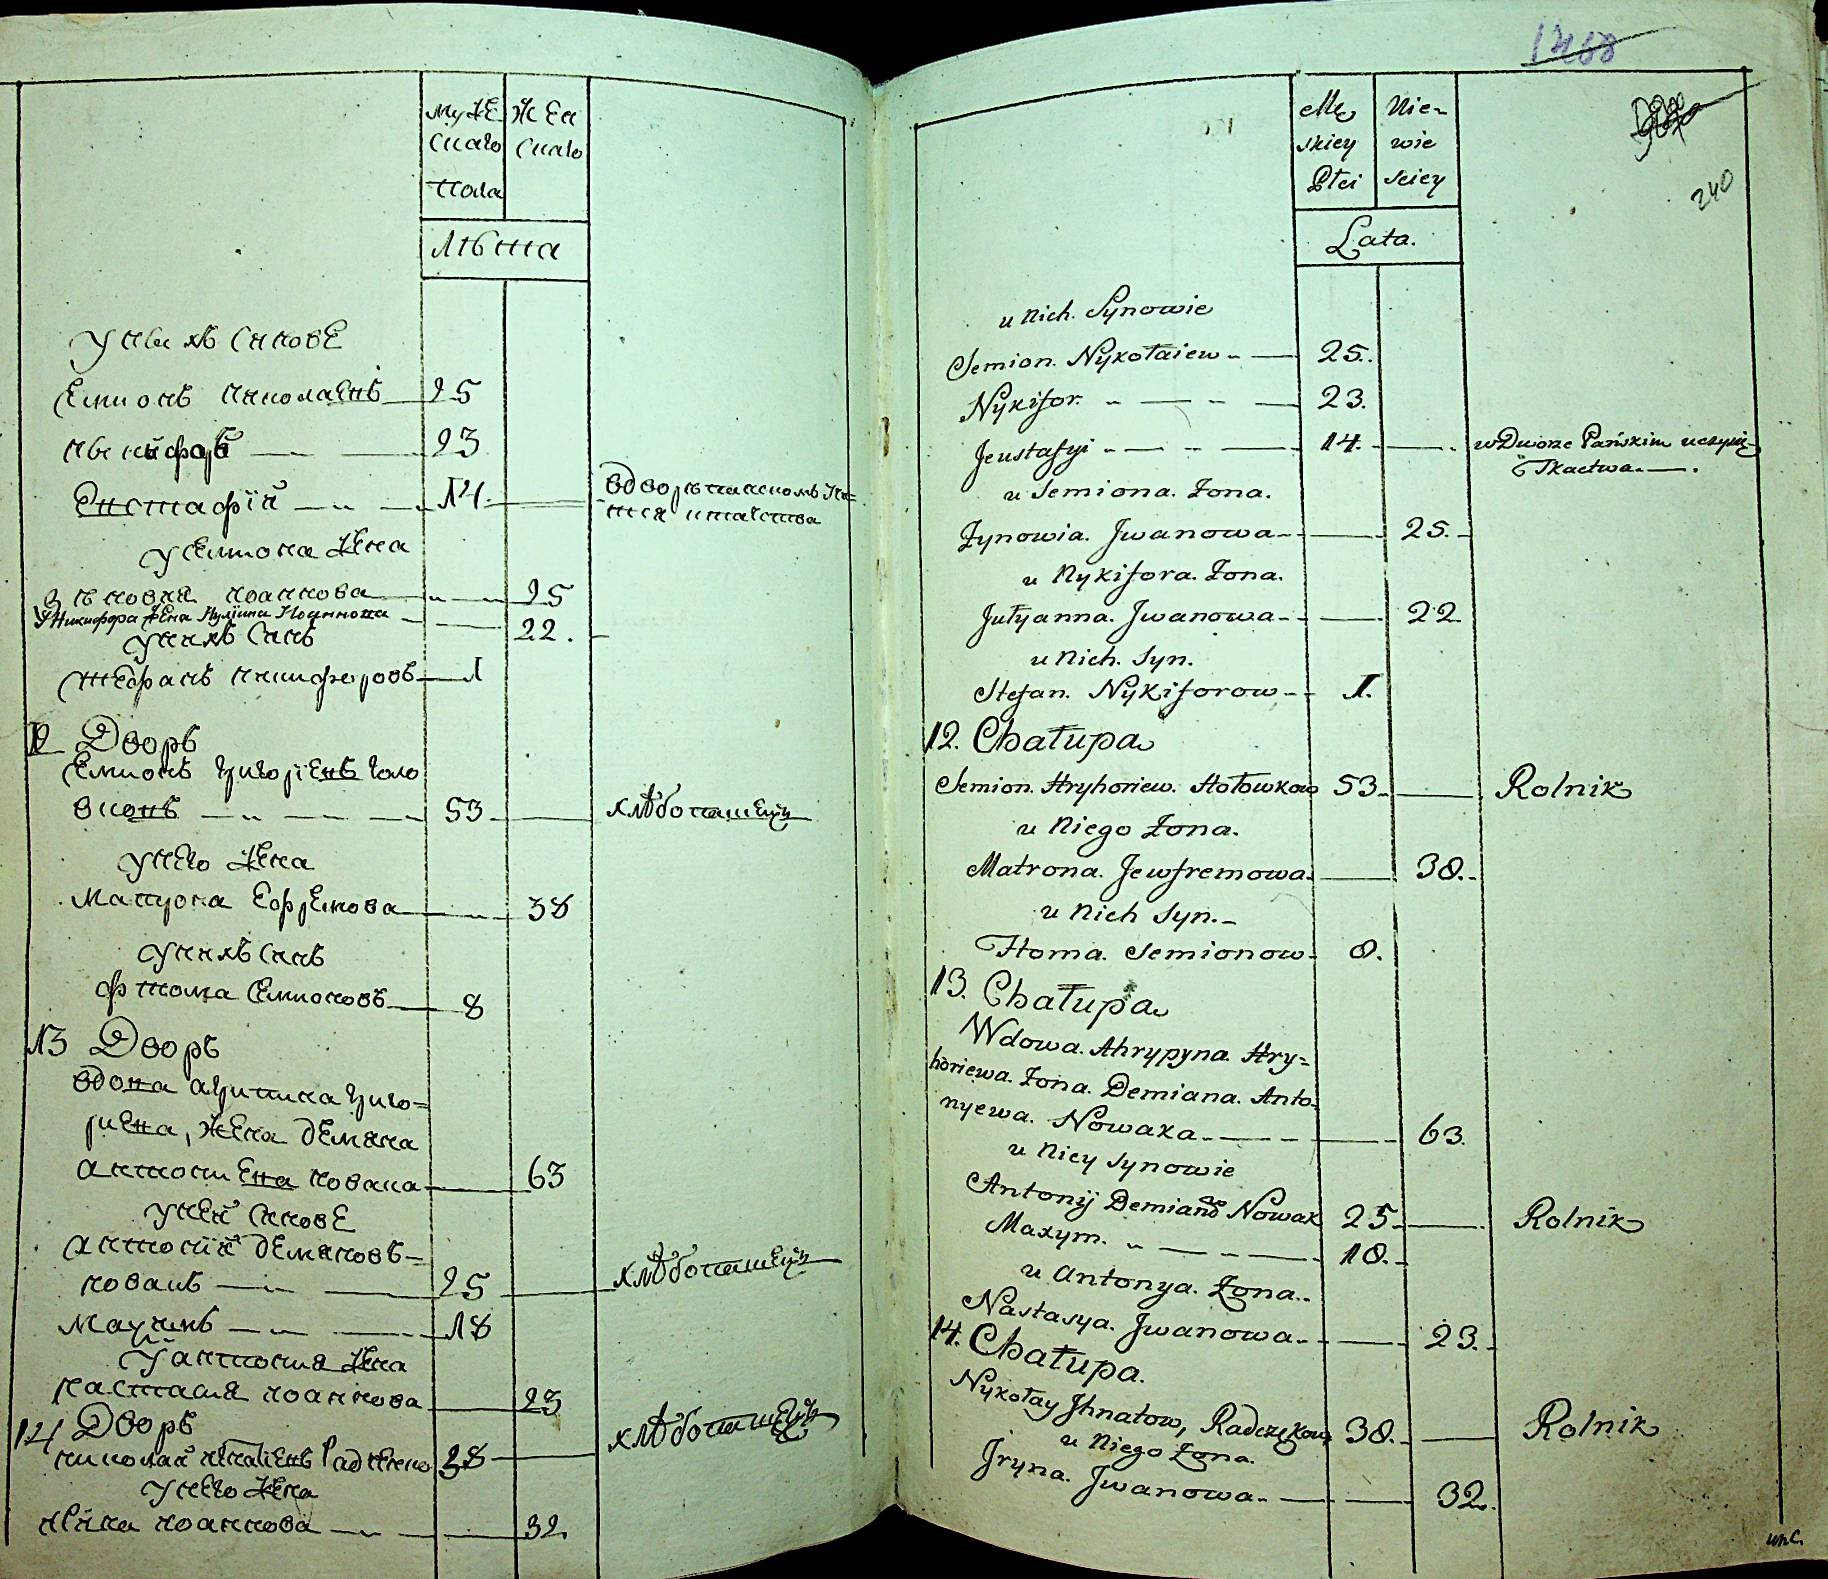 муже
скаго
пола
жен
скаго
лѣта
у ных синове
Семионъ николаевъ 25
никифоръ 23
Евстафій 14 в дворѣ панскомъ учи=
тся ткатства
у Семиона жена
Зѣновия иоаннова 25
У Никифора жена Иулияна Иоаннова 22.
у них синъ
Стефанъ никифоровъ 1
12 Дворъ
Семионъ григориевъ голо
вковъ 53 хлѣбопашецъ
у него жена
Матрона Ефремова 38
у них синъ
фтома Семионовъ 8
13 Дворъ
вдова агрипина григо=
риева, жена демяна
антониева новака 63
у ней синове
антоній демяновъ=
новакъ 25 хлѣбопашецъ
Маѯимъ 18
у антония жена
настасия иоаннова 23
14 Дворъ
николай игнатиевъ Радченко 38 хлѣбопашецъ
у него жена
ирина иоаннова 32
1468
240
Mę
skiey
Płci
Nie-
wie
sciey
Lata.
u Nich. Synowie
Semion. Nykołaiew 25.
Nykifor. 23.
Jeustafyi 14. w Dworze Pańskim uczyni
Tkactwa.
u Semiona. Żona.
Zynowia. Jwanowa 25.
u Nykifora. Żona.
Jułyanna. Jwanowa 22
u Nich. Syn.
Stefan. Nykiforow 1.
12. Chałupa
Semion. Hryhoriew. Hołowkow 53 Rolnik
u Niego Żona.
Matrona. Jewfremowa. 38.
u Nich Syn.
Homa. Semionow 8.
13. Chałupa
Wdowa. Ahrypyna. Hry=
horiewa. Żona. Demiana. Anto=
nyewa. Nowaka 63.
u Niey Synowie
Antonij Demianow Nowak 25 Rolnik
Maxym. 18.
u Antonya. Żona.
Nastasya. Jwanowa 23.
14. Chałupa.
Nykołay Jhnatow, Radczękow 38. Rolnik
u Niego Żona.
Jryna. Jwanowa 32.